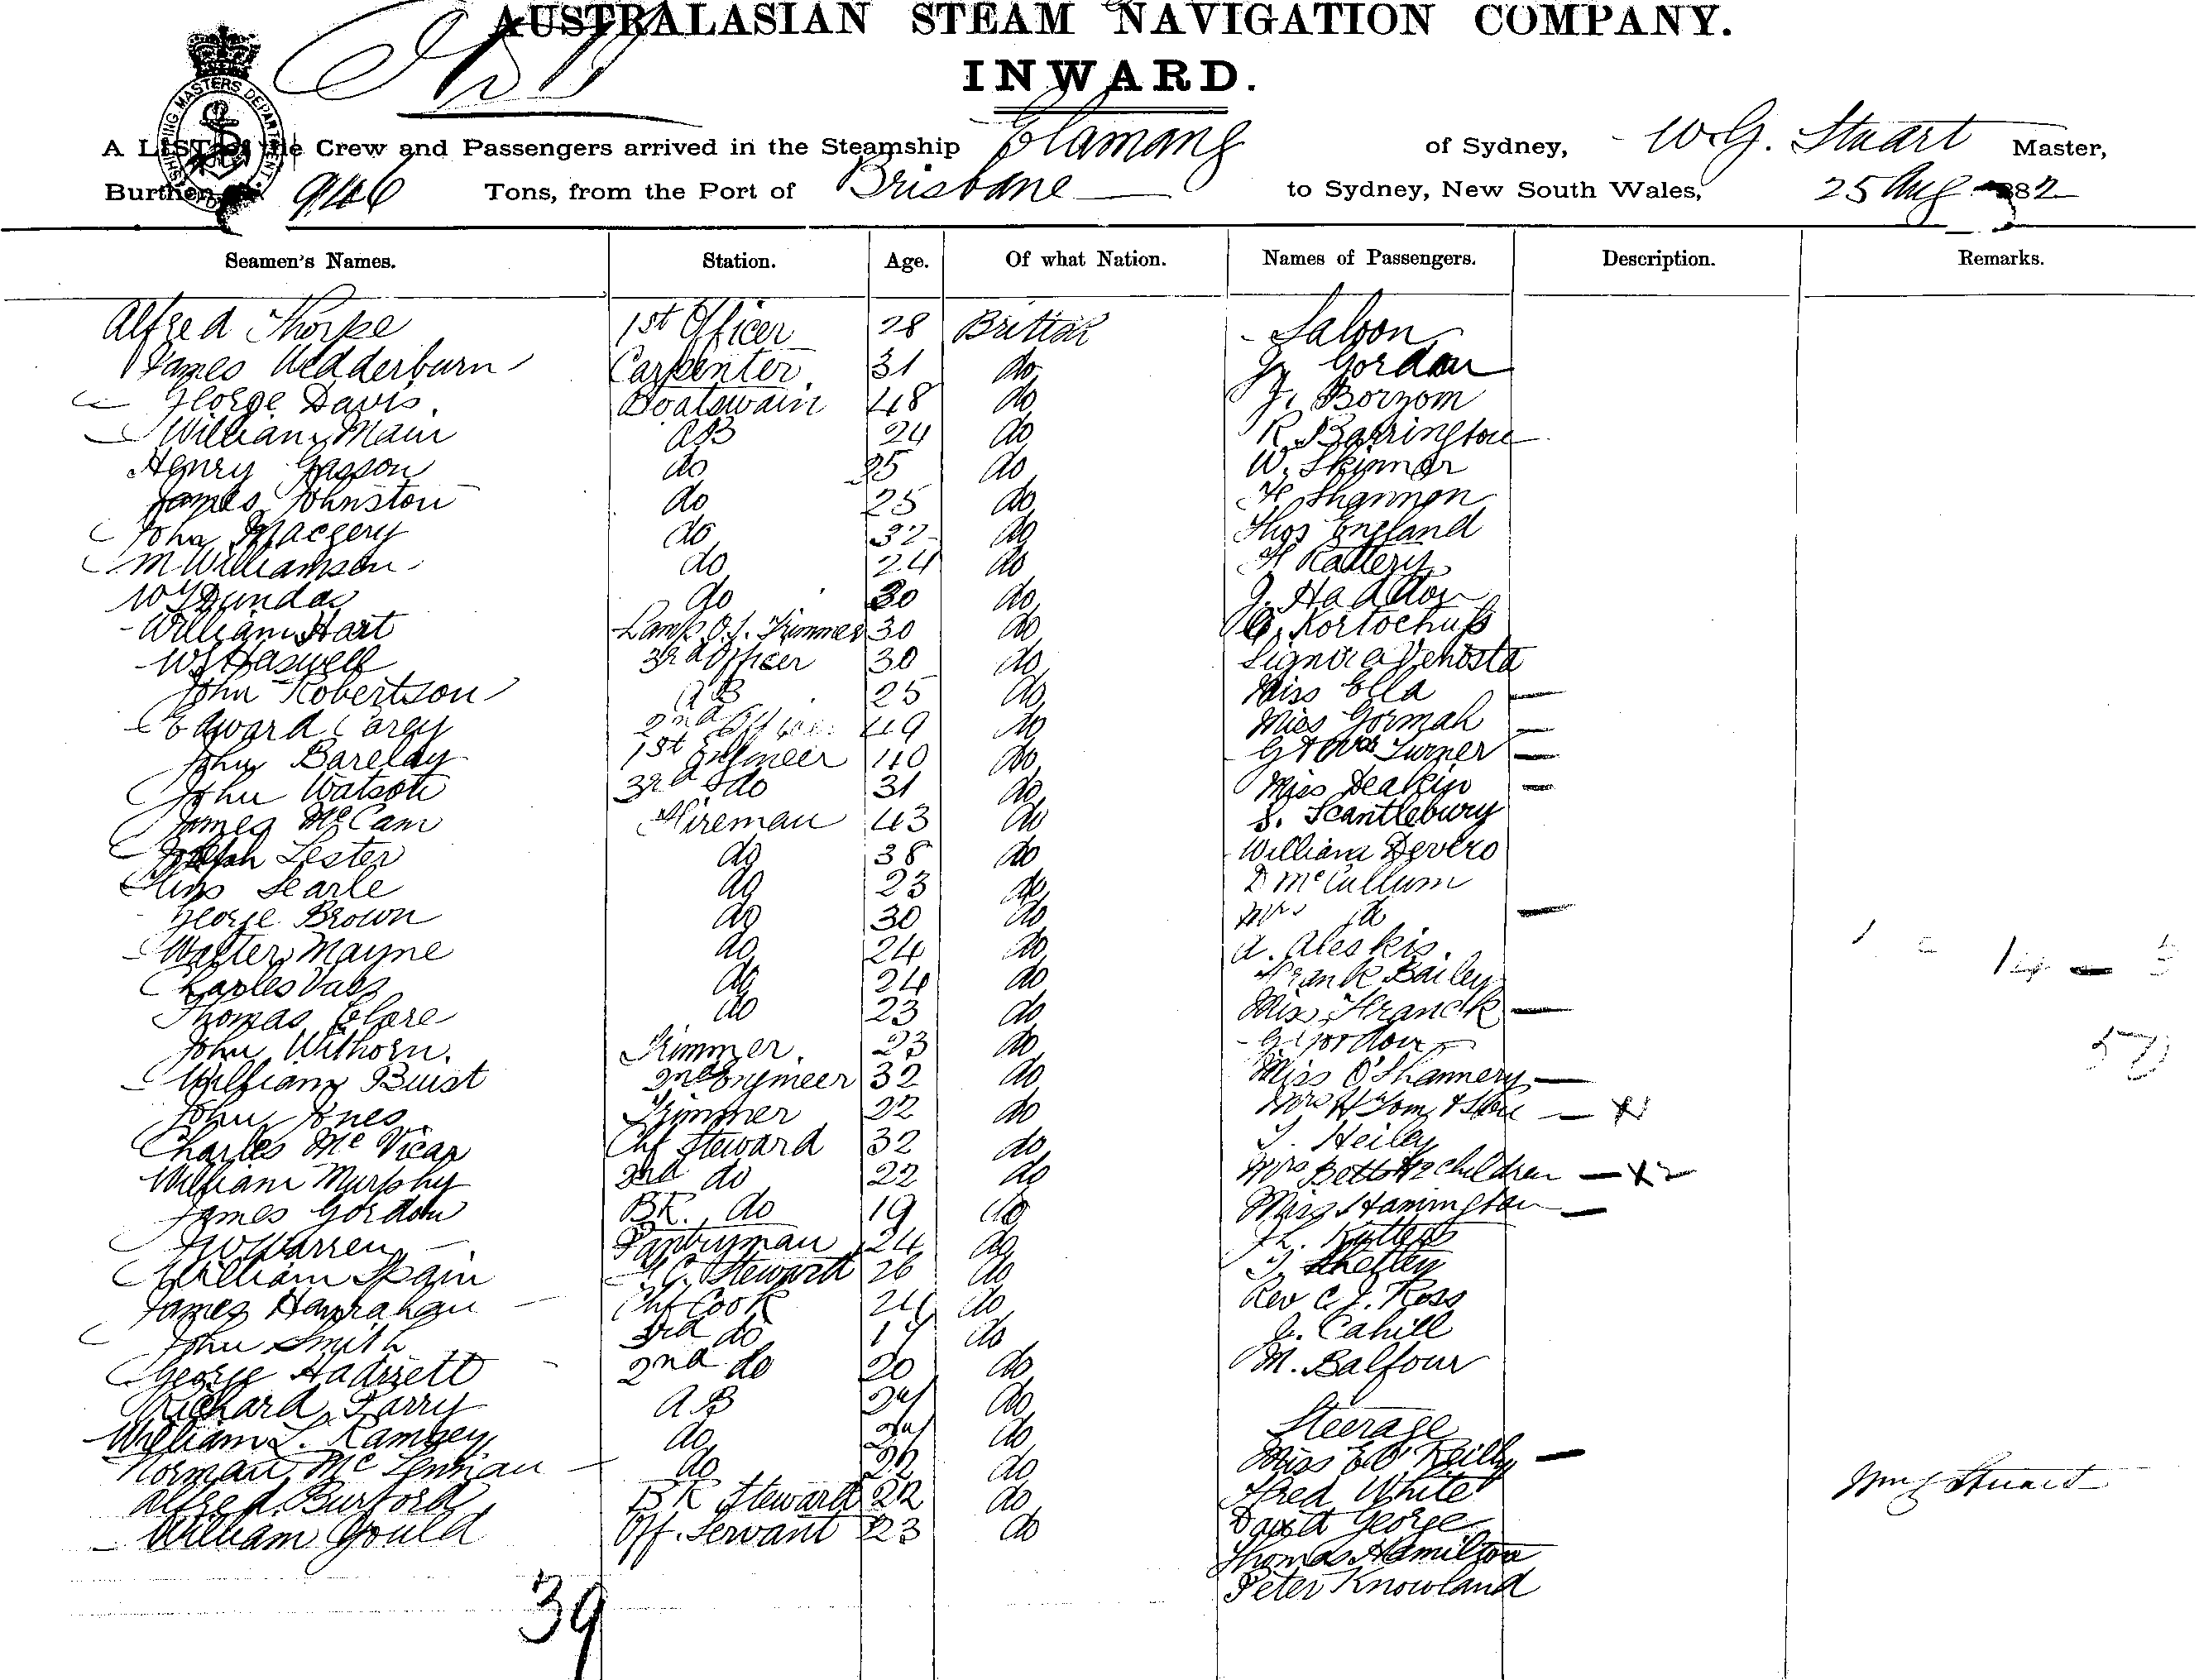 AUSTRALASIAN STEAM NAVIGATION COMPANY.
INWARD.
SHIPPING MASTERS DEPARTMENT.
A LIST of the Crew and Passengers arrived in the Steamship Elamang of Sydney, W.G. Stuart Master,
Burthen 946 Tons, from the Port of Brisbane to Sydney, New South Wales, 25 Aug 1882
Seamen's Names. Station. Age. Of what Nation. Names of Passengers. Description. Remarks.
Alfred Thorpe 1st Officer 28 British Saloon
James Wedderburn Carpenter 31 do J. Gordon
George Davis Boatswain 48 do J. Bornom
William Main AB 24 do R. Barrington
Henry Gasson do 25 do W. Skinner
James Johnston do 25 do H Shannon
John do 32 do Thos England
M Williamson do 24 do H Rattery
W Dundas do 30 do J. Haddon
William Hart Lamp Trimmer 30 do
W Haswell 3rd Officer 30 do Signora Venosta
John Robertson AB 25 do Miss Ella
Edward Carey 2nd Officer 49 do Miss Gorman
John Barclay 1st Engineer 40 do G & Mrs Turner
John Watson 3rd do 31 do Miss Deakin
James McCam Fireman 43 do S. Scantlebury
Lester do 38 do William Devero
Searle do 23 do D McCullum
George Brown do 30 do Mrs do
Walter Mayne do 24 do A. Aleskis.
Charles Vass do 24 do Frank Bailey
Thomas Clare do 23 do Miss Franck
John Withorn. Trimmer. 23 do G Gordon
William Buist 2nd Engineer 32 do Miss O'Shannery
John Jones Trimmer 22 do Mrs & Son X1
Charles McVicar Chf Steward 32 do Heiley
William Murphy 2nd do 22 do Mrs Betts & 2 children X2
James Gordon BK. do 19 do Miss Hannington
Warren Pantryman 24 do
William Spain Steward 26 do
James Hanrahan Chf Cook 24 do Rev C. J. Ross
John Smith 3rd do 17 do J. Cahill
George Hadizett 2nd do 20 do M. Balfour
Richard Parry AB 24 do
William L. Ramsey do 24 do Steerage
Norman McLennan do 22 do Miss E O'Reilly
Alfred Burford BK Steward 22 do Fred White
William Gould Off. Servant 23 do David George
Thomas Hamilton
Peter Knowland
39
Wm G Stuart